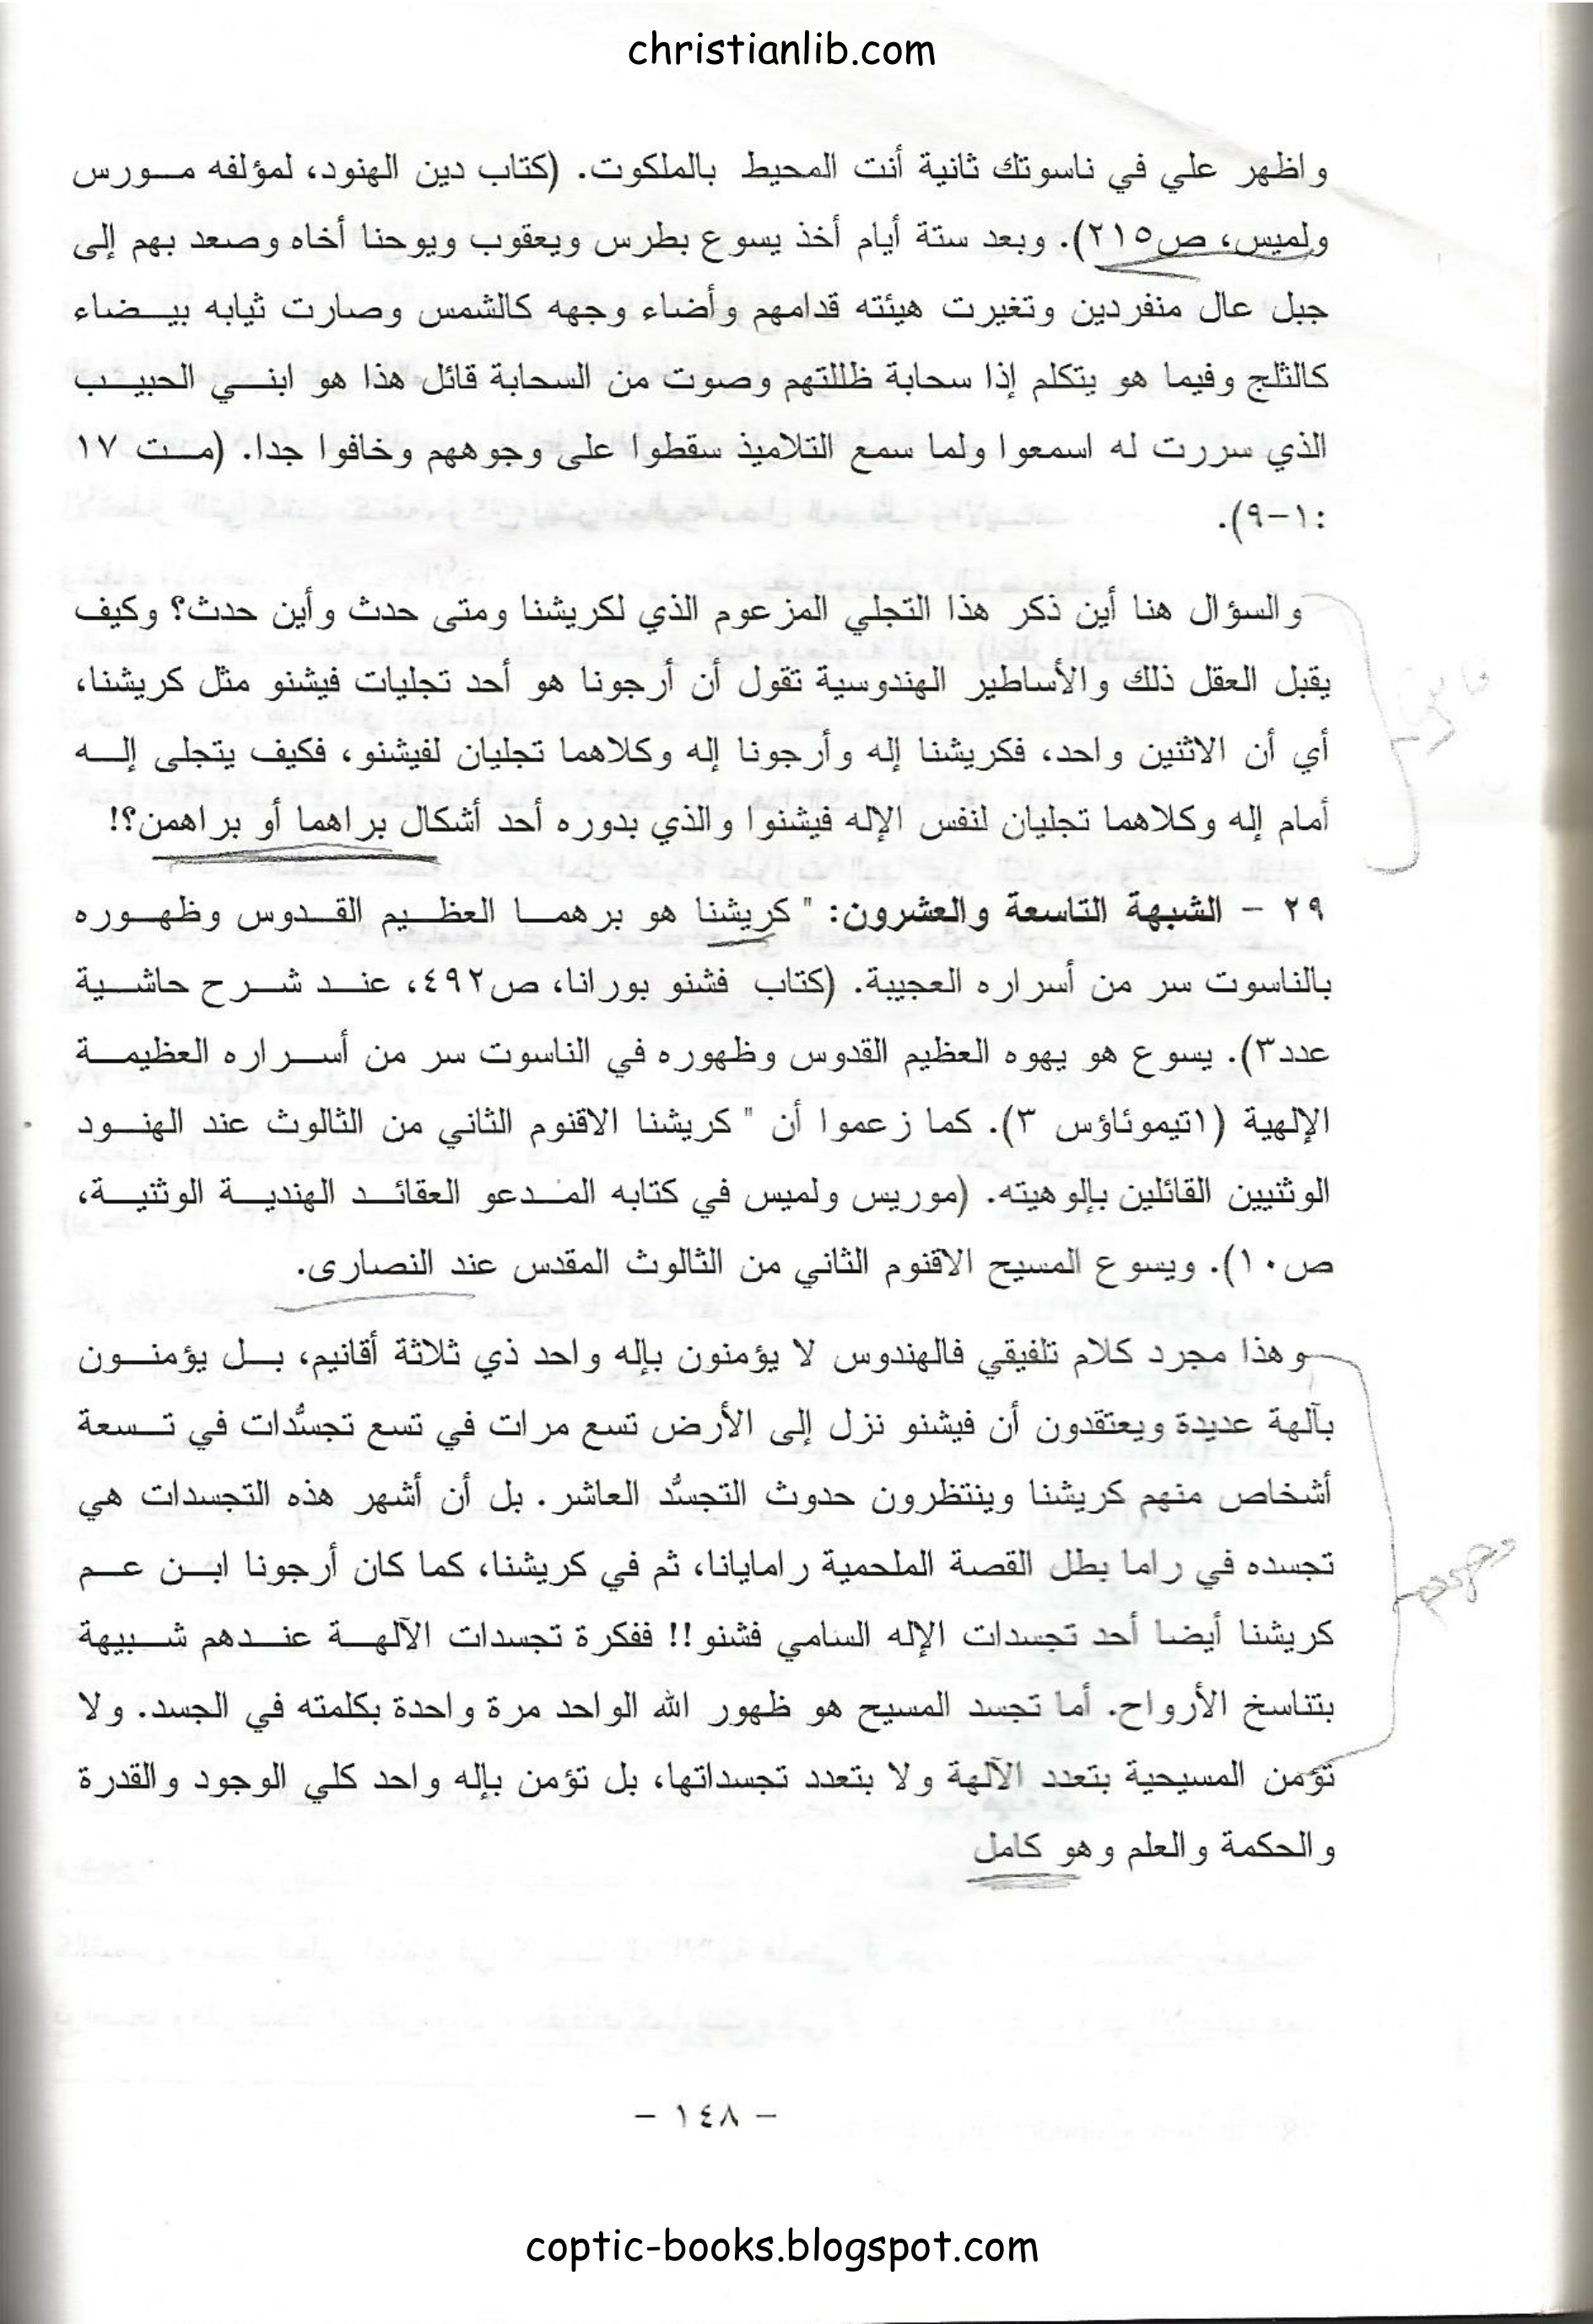 christianlib.com
واظهر علي في ناسوتك ثانية أنت المحيط بالملكوت. (كتاب دين الهنود، لمؤلفه مورس
ولميس، ص٢١٥). وبعد ستة أيام أخذ يسوع بطرس ويعقوب ويوحنا أخاه وصعد بهم إلى
جبل عال منفردين وتغيرت هيئته قدامهم وأضاء وجهه كالشمس وصارت ثيابه بيضاء
كالثلج وفيما هو يتكلم إذا سحابة ظللتهم وصوت من السحابة قائل هذا هو ابني الحبيب
الذي سررت له اسمعوا ولما سمع التلاميذ سقطوا على وجوههم وخافوا جدا. (مت ١٧
:١-٩).
والسؤال هنا أين ذكر هذا التجلي المزعوم الذي لكريشنا ومتى حدث وأين حدث؟ وكيف
يقبل العقل ذلك والأساطير الهندوسية تقول أن أرجونا هو أحد تجليات فيشنو مثل كريشنا،
أي أن الاثنين واحد، فكريشنا إله وأرجونا إله وكلاهما تجليان لفيشنو، فكيف يتجلى إله
أمام إله وكلاهما تجليان لنفس الإله فيشنوا والذي بدوره أحد أشكال براهما أو براهمن؟!
٢٩ - الشبهة التاسعة والعشرون: " كريشنا هو برهما العظيم القدوس وظهوره
بالناسوت سر من أسراره العجيبة. (كتاب فشنو بورانا، ص٤٩٢، عند شرح حاشية
عدد٣). يسوع هو يهوه العظيم القدوس وظهوره في الناسوت سر من أسراره العظيمة
الإلهية (١تيموثاؤس ٣). كما زعموا أن " كريشنا الاقنوم الثاني من الثالوث عند الهنود
الوثنيين القائلين بإلوهيته. (موريس ولميس في كتابه المدعو العقائد الهندية الوثنية،
ص١٠). ويسوع المسيح الاقنوم الثاني من الثالوث المقدس عند النصارى.
وهذا مجرد كلام تلفيقي فالهندوس لا يؤمنون بإله واحد ذي ثلاثة أقانيم، بل يؤمنون
بآلهة عديدة ويعتقدون أن فيشنو نزل إلى الأرض تسع مرات في تسع تجسُّدات في تسعة
أشخاص منهم كريشنا وينتظرون حدوث التجسُّد العاشر. بل أن أشهر هذه التجسدات هي
تجسده في راما بطل القصة الملحمية رامايانا، ثم في كريشنا، كما كان أرجونا ابن عم
كريشنا أيضا أحد تجسدات الإله السامي فشنو!! ففكرة تجسدات الآلهة عندهم شبيهة
بتناسخ الأرواح. أما تجسد المسيح هو ظهور الله الواحد مرة واحدة بكلمته في الجسد. ولا
تؤمن المسيحية بتعدد الآلهة ولا بتعدد تجسداتها، بل تؤمن بإله واحد كلي الوجود والقدرة
والحكمة والعلم وهو كامل
- ١٤٨ -
coptic-books.blogspot.com